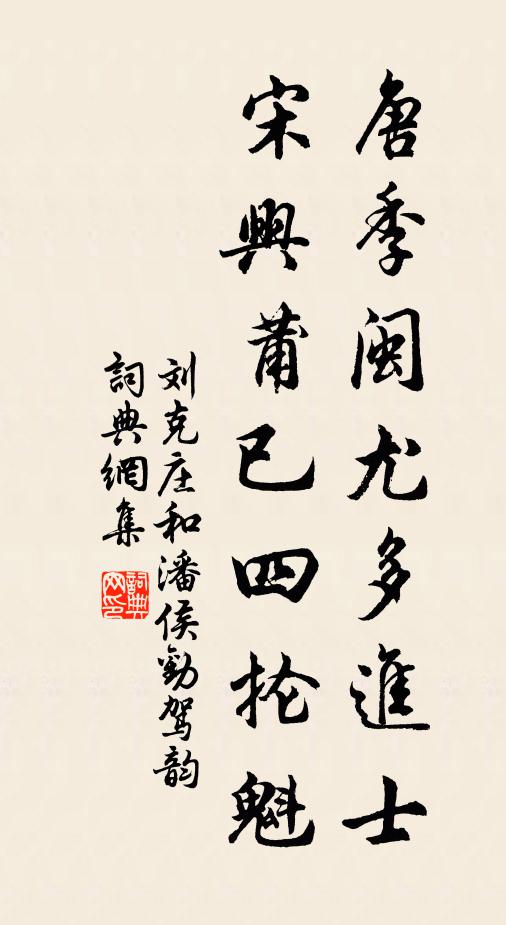 唐季闽尤多進士
宋興莆已四抡魁
刘克庄和潘侯勸驾韵
詞典網集
詞典网印